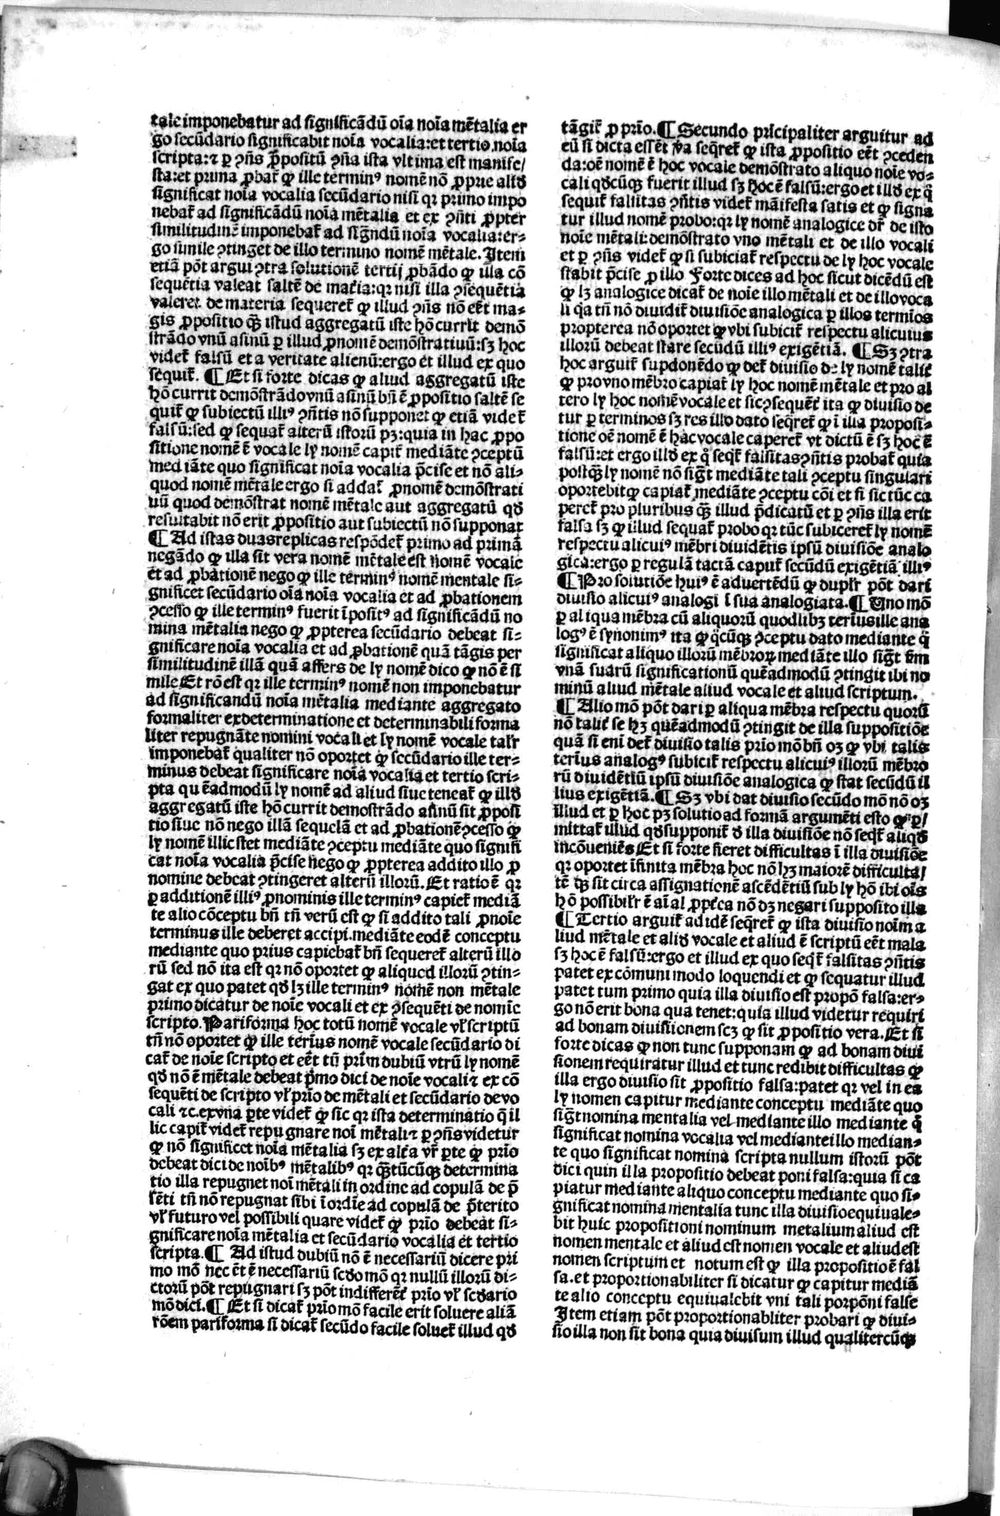 tale imponebatur ad significādū oīa noīa mētalia er
go secūdario significabit noīa vocalia: et tertio noīa
scripta: ⁊ ꝑ ꝯn̄s ꝓpositū ꝯn̄a ista vltima est manife/
sta: et prima ꝓbaꝉ ꝙ ille terminꝰ nomē nō ꝓprie aliđ
significat noīa vocalia secūdario nisi qꝛ primo impo
nebaꝉ ad significādū noīa mētalia et ex ꝯn̄ti ꝓpter
similitudinē imponebaꝉ ad sigñdū noīa vocalia: er-
go simile ꝯtinget de illo termino nomē mētale. Item
etiā pōt argui ꝯtra solutionē tertij ꝓbādo ꝙ illa cō
sequētia valeat saltē de mat̄ia: qꝛ nisi illa ꝯsequētia
valeret de materia sequereꝉ ꝙ illud ꝯn̄s nō eēt ma-
gis ꝓpositio ꝙ̄ istud aggregatū iste hō currit demō
strādo vnū asinū ꝑ illud ꝓnomē demōstratiuū: sꝫ hoc
videꝉ falsū et a veritate alienū: ergo et illud ex quo
sequiꝉ. ¶ Et si forte dicas ꝙ aliud aggregatū iste
hō currit demōstrādo vnū asinū bn̄ ē ꝓpositio saltē se
quiꝉ ꝙ subiectū illiꝰ ꝯn̄tis nō supponet ꝙ etiā videꝉ
falsū: sed ꝙ sequaꝉ alterū istorū pꝫ: quia in hac ꝓpo
sitione nomē ē vocale ly nomē capiꝉ mediāte ꝯceptū
mediāte quo significat noīa vocalia p̄cise et nō ali-
quod nomē mētale ergo si addaꝉ ꝓnomē demōstrati
uū quod demōstrat nomē mētale aut aggregatū qđ
resultabit nō erit ꝓpositio aut subiectū nō supponat
¶ Ad istas duas replicas respōdeꝉ primo ad primā
negādo ꝙ illa sit vera nomē mētale est nomē vocale
et ad ꝓbationē nego ꝙ ille terminꝰ nomē mentale si-
gnificet secūdario oīa noīa vocalia et ad ꝓbationem
ꝯcesso ꝙ ille terminꝰ fuerit īpositꝰ ad significādū no
mina mētalia nego ꝙ ꝓpterea secūdario debeat si-
gnificare noīa vocalia et ad ꝓbationē quā tāgis per
similitudinē illā quā affers de ly nomē dico ꝙ nō ē si
mile Et rō est qꝛ ille terminꝰ nomē non imponebatur
ad significandū noīa mētalia mediante aggregato
formaliter ex determinatione et determinabili forma
liter repugnāte nomini vocali et ly nomē vocale talr̄
imponebaꝉ qualiter nō oportet ꝙ secūdario ille ter-
minus debeat significare noīa vocalia et tertio scri-
pta quēadmodū ly nomē ad aliud siue teneaꝉ ꝙ illđ
aggregatū iste hō currit demostrādo asinū sit ꝓposi
tio siue nō nego illā sequelā et ad ꝓbationē ꝯcesso ꝙ
ly nomē illic stet mediāte ꝯceptu mediāte quo signifi
cat noīa vocalia p̄cise nego ꝙ ꝓpterea addito illo ꝓ
nomine debeat ꝯtingeret alterū illorū. Et ratio ē qꝛ
ꝑ additionē illiꝰ ꝓnominis ille terminꝰ capieꝉ mediā
te alio cōceptu bn̄ tn̄ verū est ꝙ si addito tali ꝓnoīe
terminus ille deberet accipi mediāte eodē conceptu
mediante quo prius capiebaꝉ bn̄ sequereꝉ alterū illo
rū sed nō ita est qꝛ nō oportet ꝙ aliquod illorū ꝯtin-
gat ex quo patet qđ lꝫ ille terminꝰ nomē non mētale
primo dicatur de noīe vocali et ex ꝯsequēti de nomīe
scripto. Pariforma hoc totū nomē vocale vꝉ scriptū
tn̄ nō oportet ꝙ ille terīus nomē vocale secūdario di
caꝉ de noīe scripto et eēt tn̄ prīm dubiū vtrū ly nomē
qđ nō ē mētale debeat p̄mo dici de noīe vocali ⁊ ex cō
sequēti de scripto vꝉ prīo de mētali et secūdario de vo
cali ⁊c. ex vna ꝑte videꝉ ꝙ sic qꝛ ista determinatio q̄ il
lic capiꝉ videꝉ repugnare noī mētali ⁊ ꝑ ꝯn̄s videtur
ꝙ nō significet noīa mētalia sꝫ ex alt̄a vꝉ ꝑte ꝙ prīo
debeat dici de noībꝰ mētalibꝰ qꝛ q̄ntūcūꝙ determina
tio illa repugnet noī mētali in ordine ad copulā de p̄
sēti tn̄ nō repugnat sibi ī ordīe ad copulā de p̄terito
vꝉ futuro vel possibili quare videꝉ ꝙ prīo debeat si-
gnificare noīa mētalia et secūdario vocalia et tertio
scripta. ¶ Ad istud dubiū nō ē necessariū dicere pri
mo mō nec ēt ē necessariū scđo mō qꝛ nullū illorū di-
ctorū pōt repugnari sꝫ pōt indifferēt prīo vꝉ scđario
mō dici. ¶ Et si dicaꝉ prīo mō facile erit soluere aliā
rōem pariforma si dicaꝉ secūdo facile solueꝉ illud qđ
tāgiꝉ ꝓ prīo. ¶ Secundo prīcipaliter arguitur ad
eū si dicta essēt v̄a seq̄reꝉ ꝙ ista ꝓpositio eēt ꝯceden
da: oē nomē ē hoc vocale demōstrato aliquo noīe vo-
cali qđcūqꝫ fuerit illud sꝫ hoc ē falsū: ergo et illđ ex q̄
sequiꝉ fallitas ꝯn̄tis videꝉ māifesta satis et ꝙ signa
tur illud nomē probo: qꝛ ly nomē analogice dr̄ de isto
noīe mētali: demōstrato vno mētali et de illo vocali
et ꝑ ꝯn̄s videꝉ ꝙ si subiciaꝉ respectu de ly hoc vocale
stabit p̄cise ꝓ illo Forte dices ad hoc sicut dicēdū est
ꝙ lꝫ analogice dicaꝉ de noīe illo mētali et de illo voca
li q̄a tn̄ nō diuidiꝉ diuisiōe analogica ꝑ illos termīos
propterea nō oportet ꝙ vbi subiciꝉ respectu alicuius
illorū debeat stare secūdū illiꝰ exigētiā. ¶ Sꝫ ꝯtra
hoc arguiꝉ supponēdo ꝙ deꝉ diuisio de ly nomē taliꝉ
ꝙ pro vno mēbro capiaꝉ ly hoc nomē mētale et pro al
tero ly hoc nomē vocale et sic ꝯsequeꝉ ita ꝙ diuisio de
tur ꝑ terminos sꝫ res illo dato seq̄reꝉ ꝙ ī illa proposi-
tione oē nomē ē hāc vocale capereꝉ vt dictū ē sꝫ hoc ē
falsū: et ergo illđ ex q̄ seqꝉ falsitas ꝯn̄tis probaꝉ quia
postq̄ꝫ ly nomē nō sigꝉ mediāte tali ꝯceptu singulari
oportebit ꝙ capiaꝉ mediāte ꝯceptu cōi et si sic tūc ca
pereꝉ pro pluribus q̄ꝫ illud p̄dicatū et ꝑ ꝯn̄s illa erit
falsa sꝫ ꝙ illud sequaꝉ probo qꝛ tūc subicereꝉ ly nomē
respectu alicuiꝰ mēbri diuidētis ipsū diuisiōe analo
gica: ergo ꝑ regulā tactā capiꝉ secūdū exigētiā illiꝰ
¶ Pro solutiōe huiꝰ ē aduertēdū ꝙ duplr̄ pōt dari
diuisio alicuiꝰ analogi ī sua analogiata. ¶ Uno mō
ꝑ aliqua mēbra cū aliquorū quodlibꝫ terīus ille ana
logꝰ ē synonimꝰ ita ꝙ q̄cūqꝫ ꝯceptu dato mediante q̄
significat aliquo illorū mēbroꝝ mediāte illo sigꝉ fm̄
vnā suarū significationū quēadmodū ꝯtingit ibi no
minū aliud mētale aliud vocale et aliud scriptum.
¶ Alio mō pōt dari ꝑ aliqua mēbra respectu quorū
nō taliꝉ se hꝫ quēadmodū ꝯtingit de illa suppositiōe
quā si eni deꝉ diuisio talis prīo mō bn̄ oꝫ ꝙ vbi talis
terīus analogꝰ subiciꝉ respectu alicuiꝰ illorū mēbro
rū diuidētiū ipsū diuisiōe analogica ꝙ stat secūdū il
lius exigētiā. ¶ Sꝫ vbi dat diuisio secūdo mō nō oꝫ
illud et ꝑ hoc pꝫ solutio ad formā argumēti esto ꝙ ꝑ/
mittaꝉ illud qđ supponiꝉ đ illa diuisiōe nō seqꝉ aliqđ
incōueniēs Et si forte fieret difficultas ī illa diuisiōe
qꝛ oportet īfinita mēbra hoc nō hꝫ maiorē difficulta/
tē q̄ꝫ sit circa assignationē ascēdētiū sub ly hō ibi oīs
hō possibilr̄ ē aīal ꝓpt̄ea nō dꝫ negari supposito illa
¶ Tertio arguiꝉ ad idē seq̄reꝉ ꝙ ista diuisio noīm a
liud mētale et aliđ vocale et aliud ē scriptū eēt mala
sꝫ hoc ē falsū: ergo et illud ex quo seqꝉ falsitas ꝯn̄tis
patet ex cōmuni modo loquendi et ꝙ sequatur illud
patet tum primo quia illa diuisio est propō falsa: er-
go nō erit bona qua tenet: quia illud videtur requiri
ad bonam diuisionem scꝫ ꝙ sit ꝓpositio vera. Et si
forte dicas ꝙ non tunc supponam ꝙ ad bonam diui
sionem requiratur illud et tunc redibit difficultas ꝙ
illa ergo diuisio sit ꝓpositio falsa: patet qꝛ vel in ea
ly nomen capitur mediante conceptu mediāte quo
sigꝉt nomina mentalia vel mediante illo mediante q̄
significat nomina vocalia vel mediante illo median-
te quo significat nomina scripta nullum istorū pōt
dici quin illa propositio debeat poni falsa: quia si ca
piatur mediante aliquo conceptu mediante quo si-
gnificat nomina mentalia tunc illa diuisio equiuale-
bit huic propositioni nominum metalium aliud est
nomen mentale et aliud est nomen vocale et aliud est
nomen scriptum et notum est ꝙ illa propositio ē fal
sa. et proportionabiliter si dicatur ꝙ capitur mediā
te alio conceptu equiualebit vni tali porpōni false
Item etiam pōt proportionabliter probari ꝙ diui-
sio illa non sit bona quia diuisum illud qualitercūqꝫ